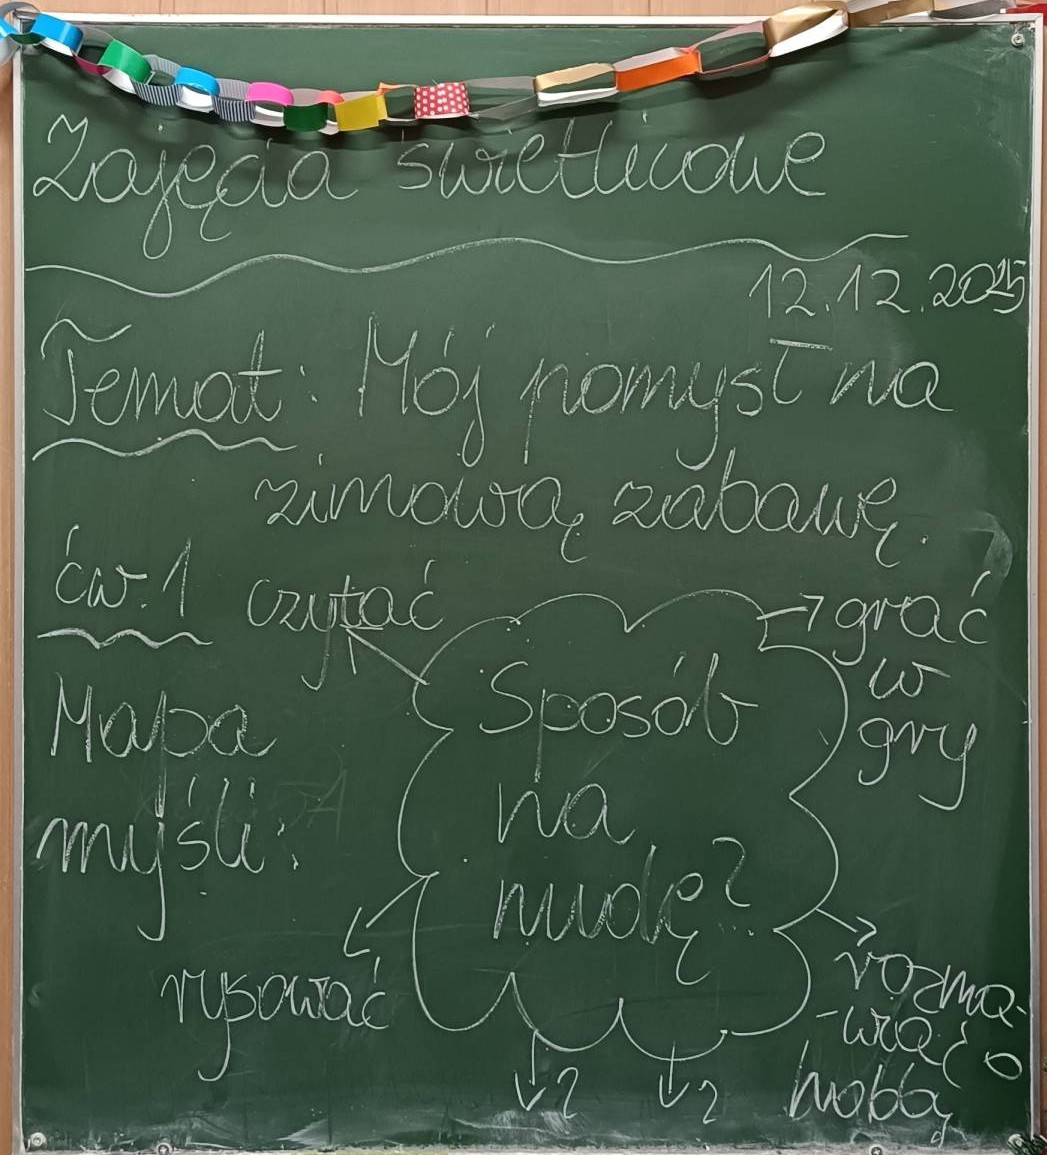 Zajęcia świetlicowe
12.12.2025
Temat: Mój pomysł na
zimową zabawę.
ćw. 1
Mapa
myśli:
Sposób
na
nudę?...
czytać
grać
w
gry
rysować
rozma-
-wiać o
hobby
?
?